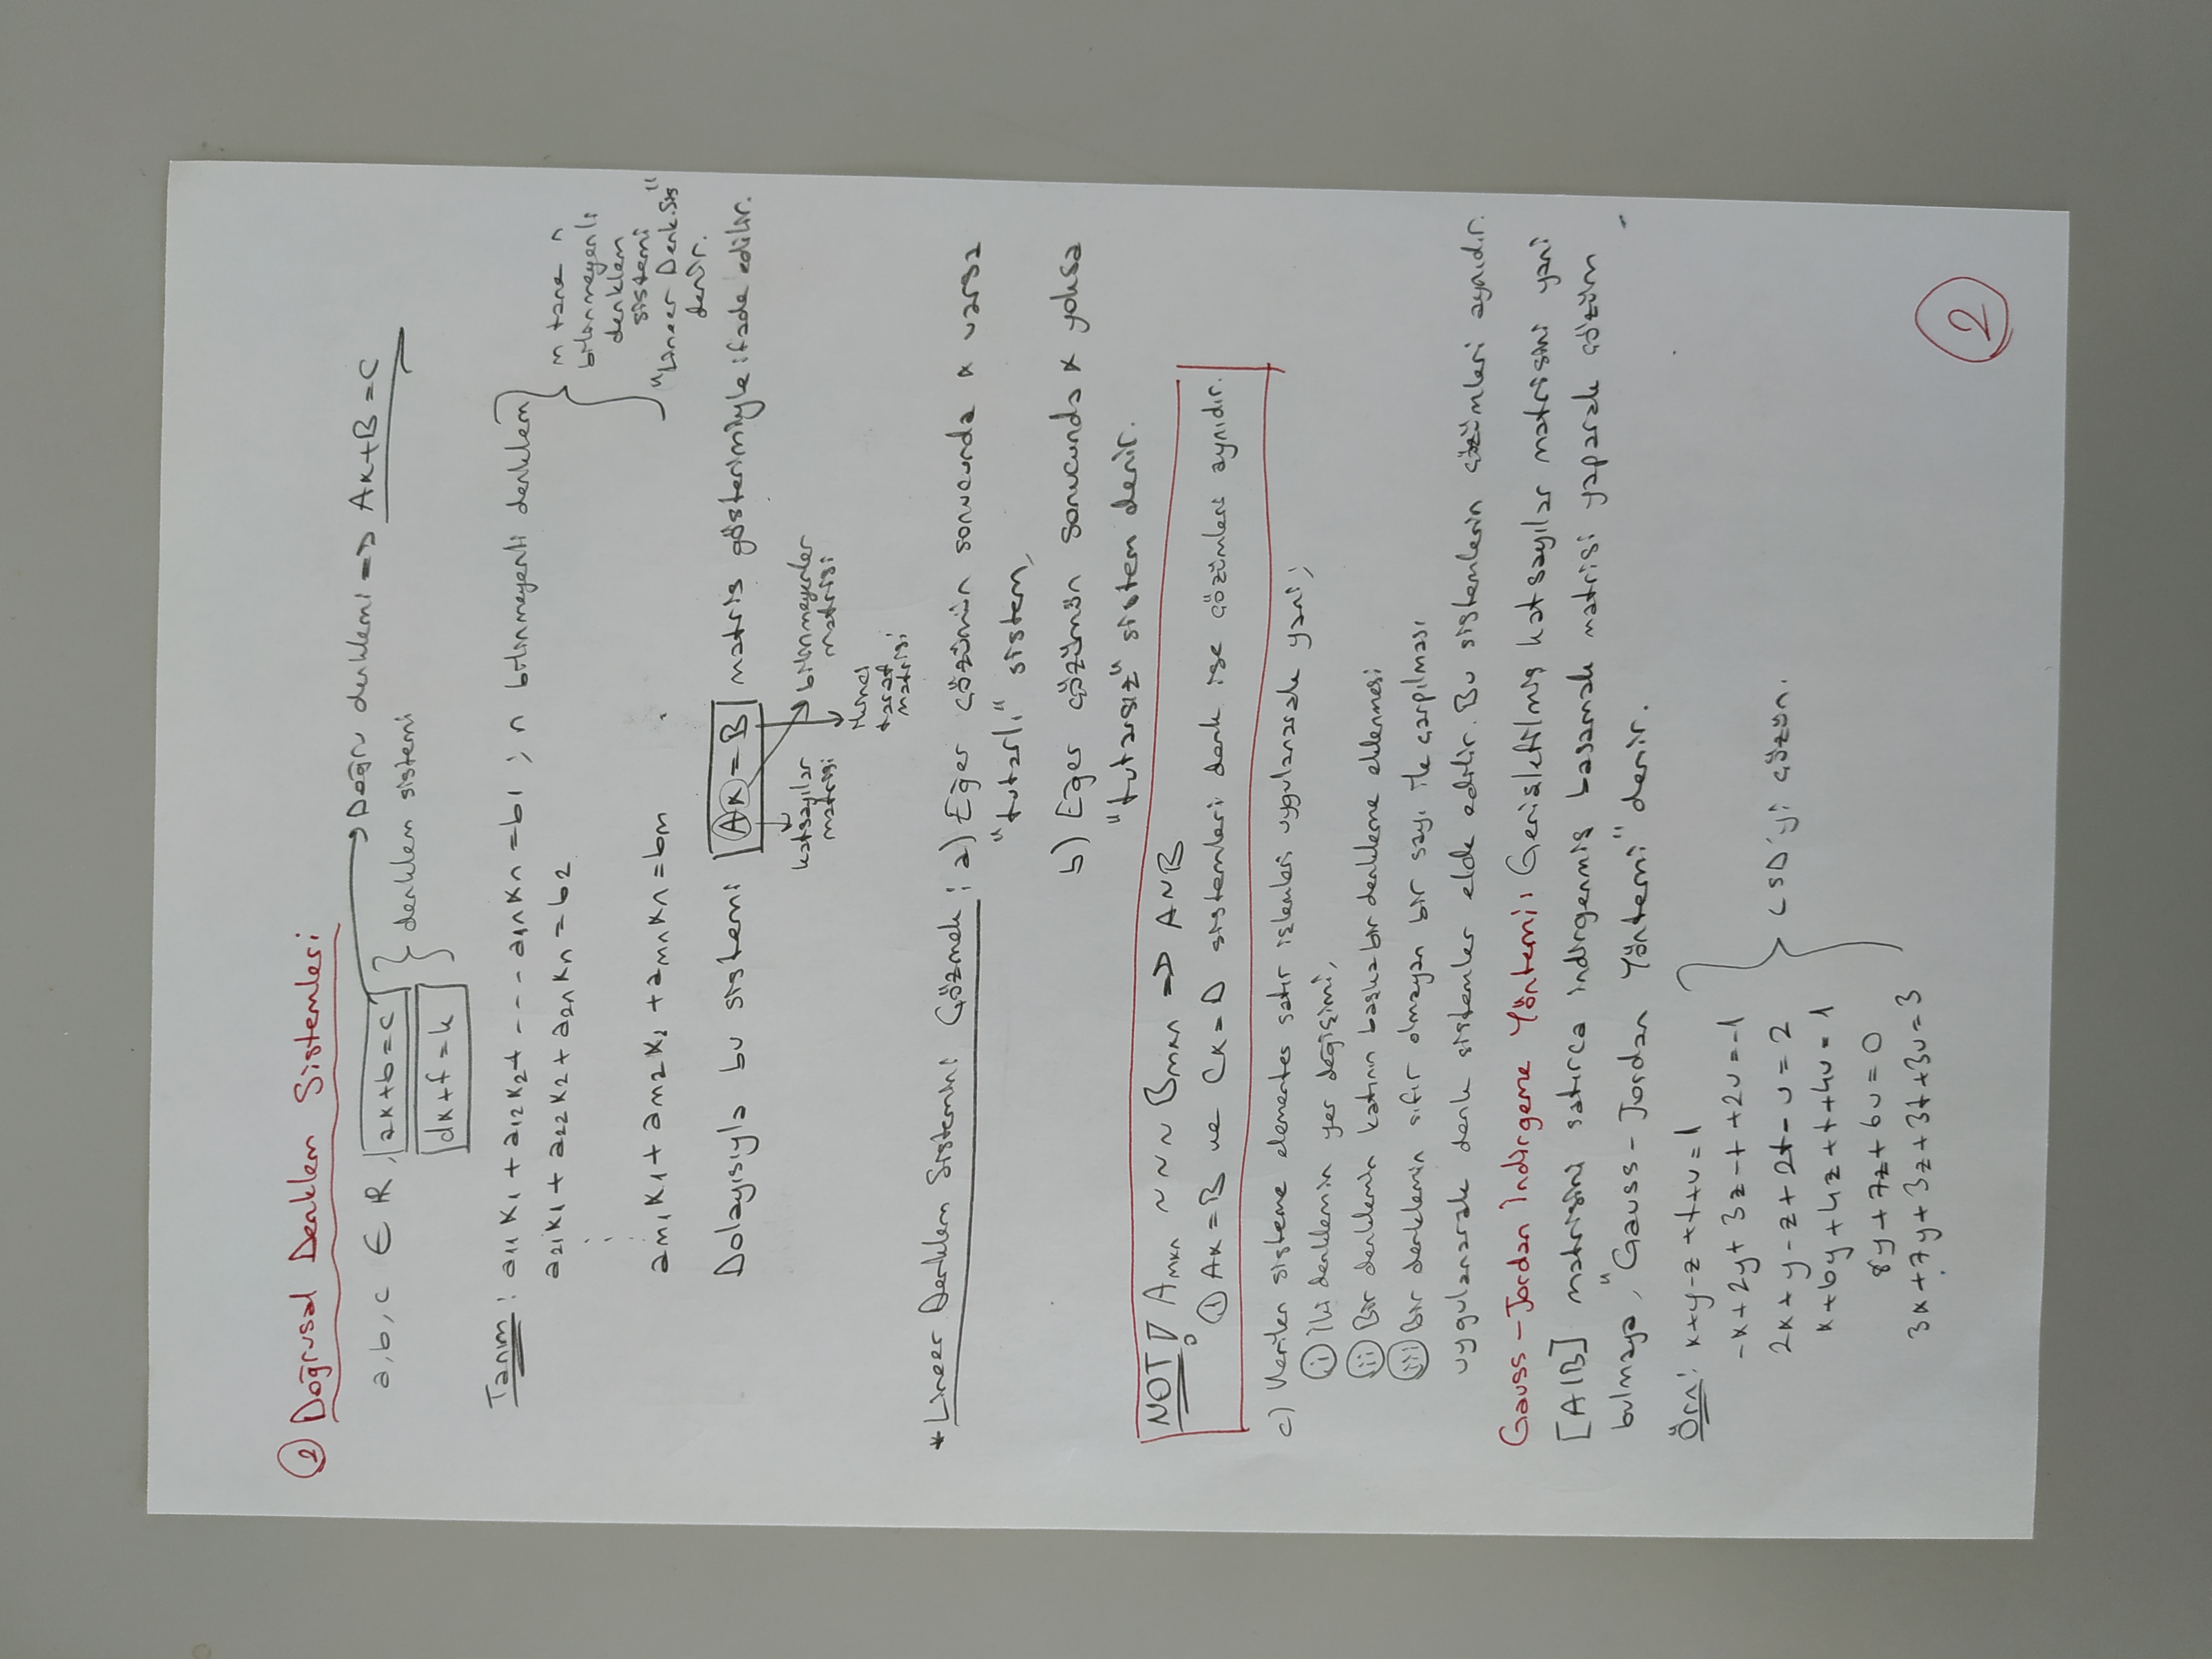 ② Doğrusal Denklem Sistemleri
a, b, c ∈ ℝ, ax+b=c → Doğru denklemi ⇒ Ax+B=C
dx+f=k } denklem sistemi
Tanım: a11x1 + a12x2 + --- a1nxn = b1 ; n bilinmeyenli denklem
a21x1 + a22x2 + a2nxn = b2
⋮
am1x1 + am2x2 + amnxn = bm
m tane n
bilinmeyenli
denklem
sistemi
"Lineer Denk. Sis"
denir.
Dolayısıyla bu sistemi Ax = B matris gösterimiyle ifade edilir.
katsayılar
matrisi
bilinmeyenler
matrisi
ikinci
taraf
matrisi
* Lineer Denklem Sistemini Çözmek : a) Eğer çözümün sonucunda x varsa
"tutarlı" sistem,
b) Eğer çözümün sonucunda x yoksa
"tutarsız" sistem denir.
NOT! Amxn ~ ~ ~ Bmxn ⇒ A~B
① Ax = B ve Cx = D sistemleri denk ise çözümleri aynıdır.
c) Verilen sisteme elementer satır işlemleri uygulanarak yani;
(i) İki denklemin yer değişimi,
(ii) Bir denklemin katının başka bir denkleme eklenmesi
(iii) Bir denklemin sıfır olmayan bir sayı ile çarpılması
uygulanarak denk sistemler elde edilir. Bu sistemlerin çözümleri aynıdır.
Gauss-Jordan İndirgeme Yöntemi: Genişletilmiş katsayılar matrisini yani
[A|B] matrisini satırca indirgenmiş basamak matrisi yaparak çözüm
bulmaya, "Gauss-Jordan Yöntemi" denir.
Örn: x+y-z+t+u=1
-x+2y+3z-t+2u=-1
2x+y-z+2t-u=2
x+6y+4z+t+4u=1
8y+7z+6u=0
3x+7y+3z+3t+3u=3
LSD'yi çözün.
2